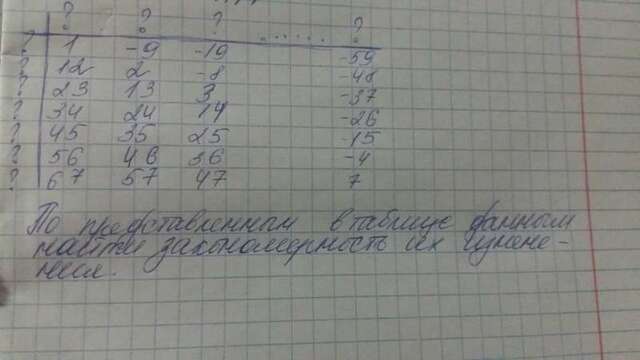 ? ? ? ?
? 1 -9 -19 ...... -59
? 12 2 -8 -48
? 23 13 3 -37
? 34 24 14 -26
? 45 35 25 -15
? 56 46 36 -4
? 67 57 47 7
По представленным в таблице данным
найти закономерность их измене-
ния.